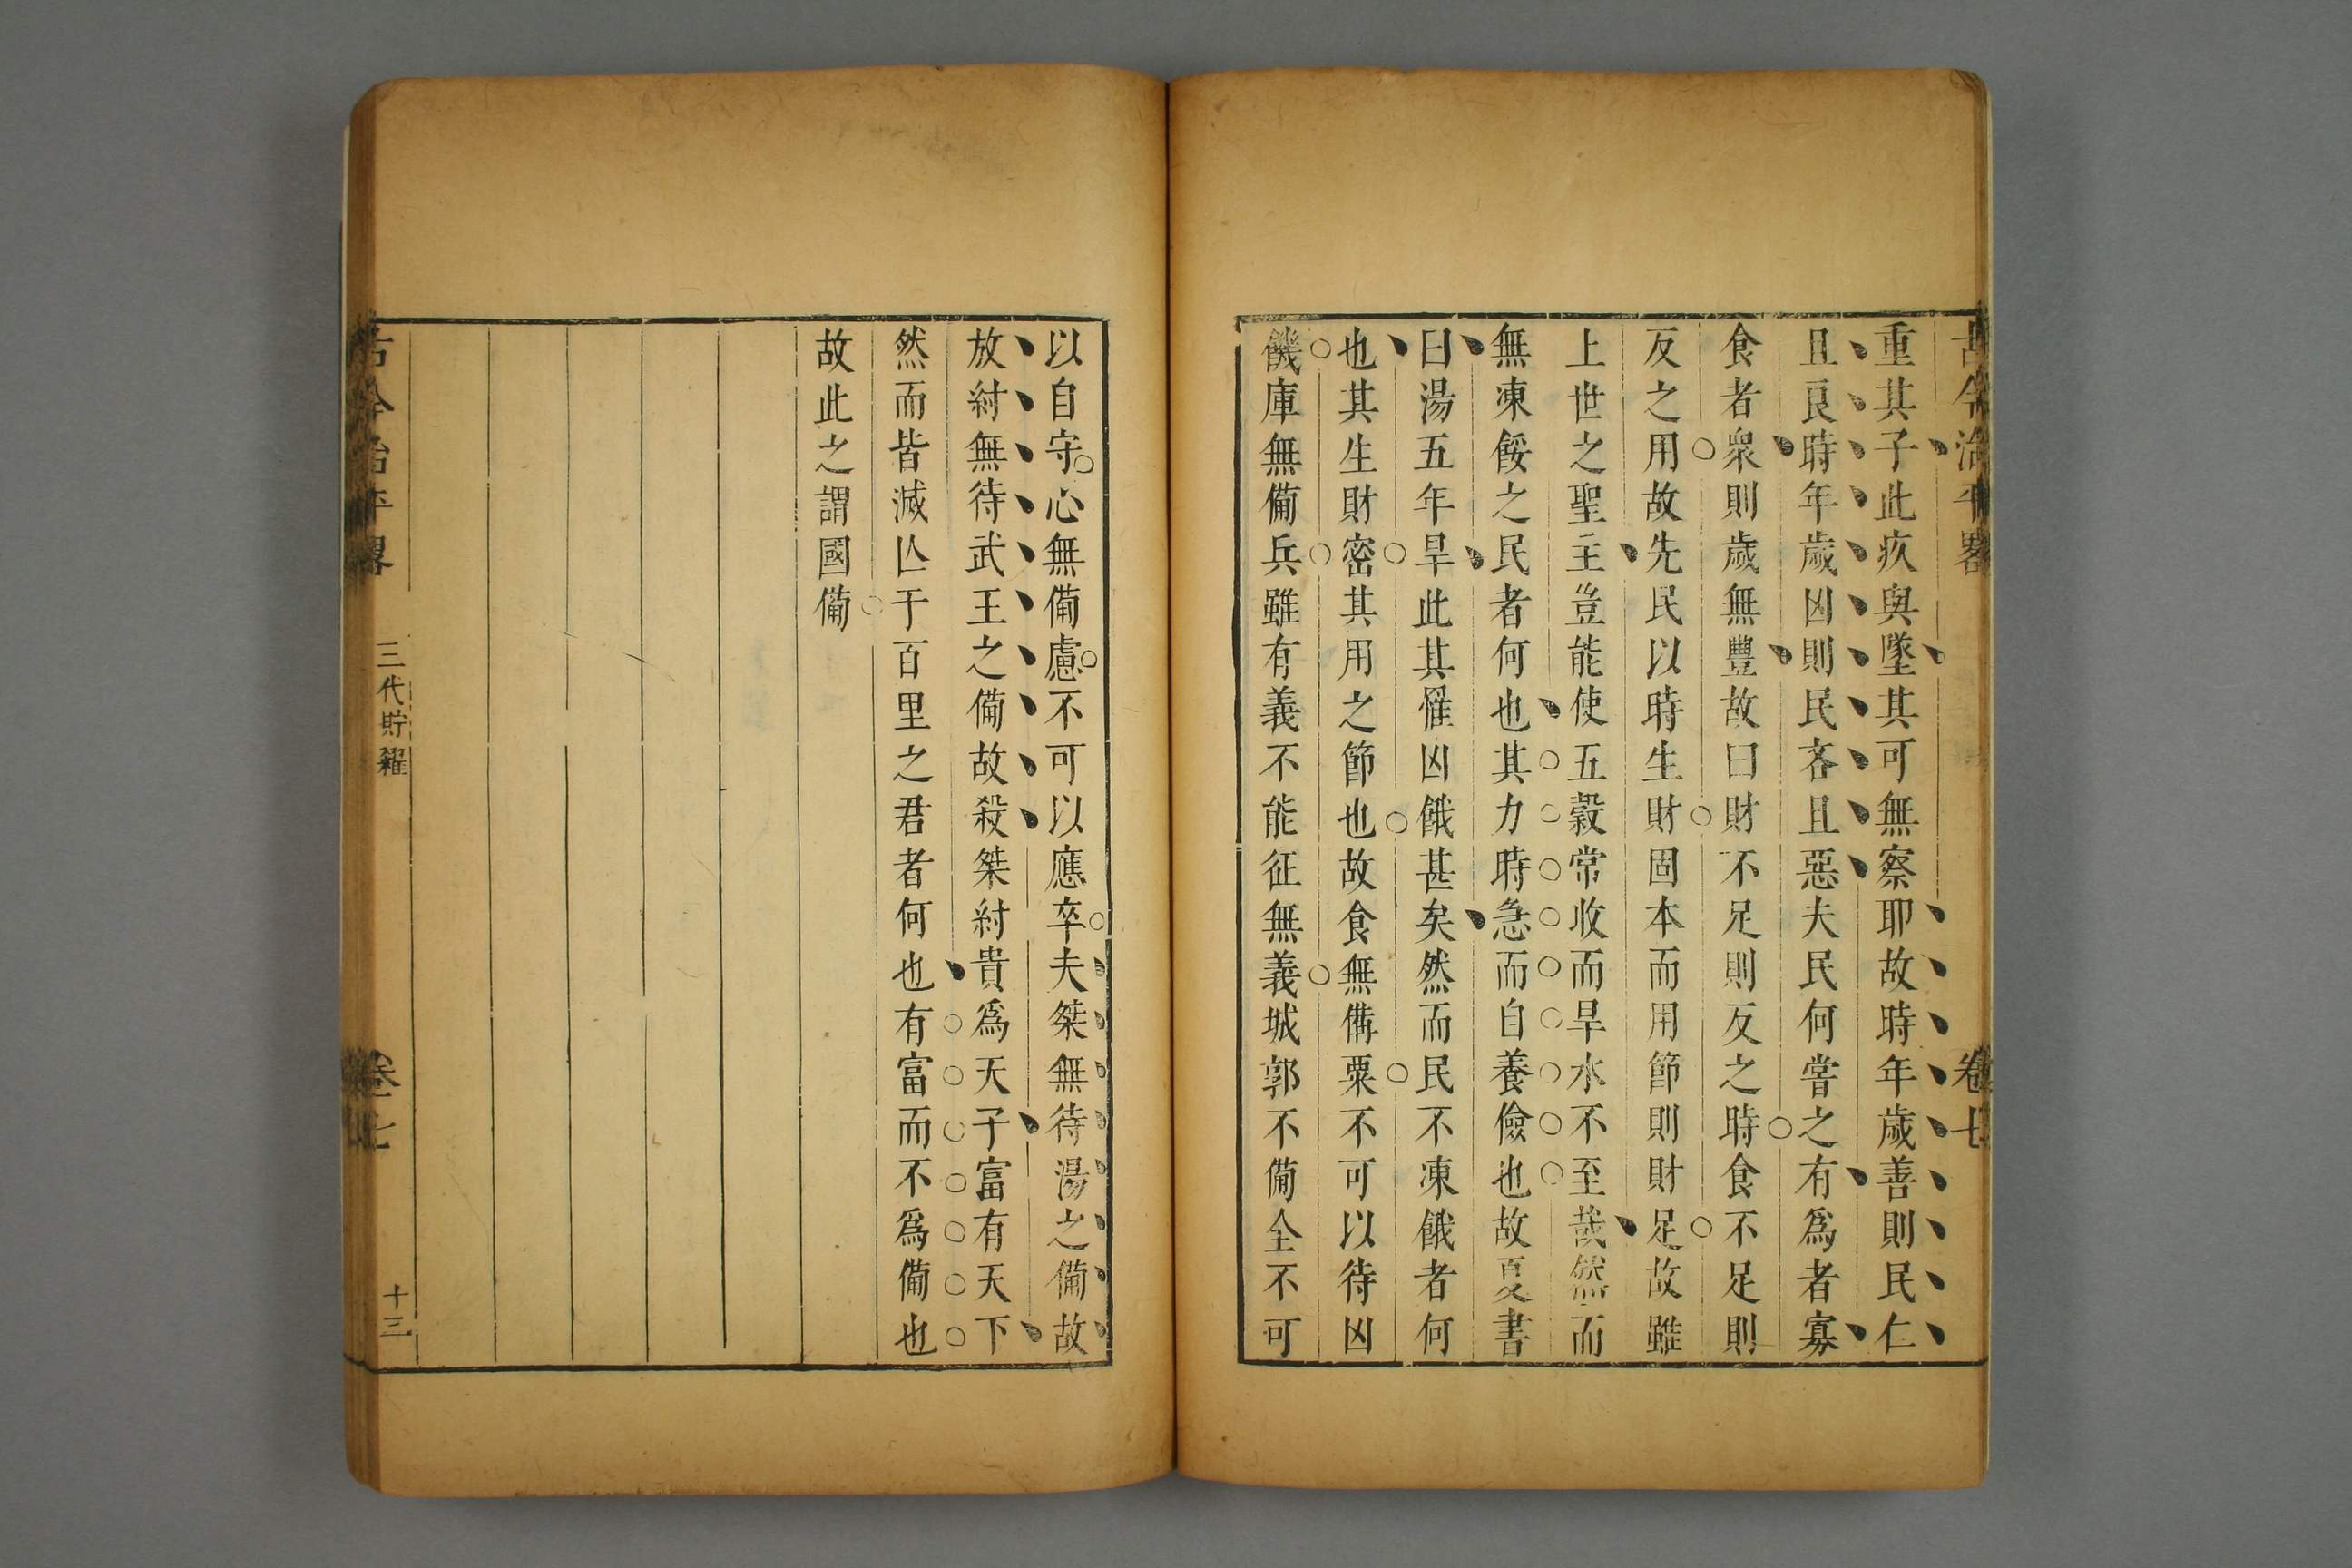 古今治平畧
卷七
重其子此疚與墜其可無察耶故時年歲善則民仁
且良時年歲凶則民吝且惡夫民何嘗之有爲者寡
食者衆則歲無豐故曰財不足則反之時食不足則
反之用故先民以時生財固本而用節則財足故雖
上世之聖主豈能使五穀常收而旱水不至哉然而
無凍餒之民者何也其力時急而自養儉也故夏書
曰湯五年旱此其罹凶餓甚矣然而民不凍餓者何
也其生財密其用之節也故食無備粟不可以待凶
饑庫無備兵雖有義不能征無義城郭不備全不可
以自守心無備慮不可以應卒夫桀無待湯之備故
放紂無待武王之備故殺桀紂貴爲天子富有天下
然而皆滅亾于百里之君者何也有富而不爲備也
故此之謂國備
古今治平畧
三代貯糴
卷七
十三